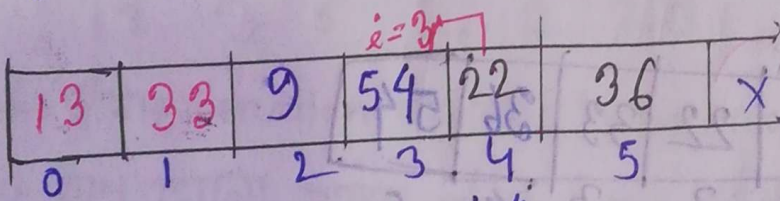 i=3
13 33 9 54 22 36 x
0 1 2 3 4 5